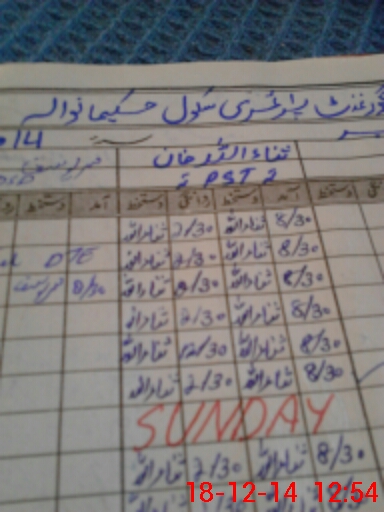 گورنمنٹ پرائمری سکول حکیمانوالہ
14
ثناءاللہ خان
PST
آمد دستخط روانگی دستخط آمد دستخط
8/30 ثناءاللہ 2/30 ثناءاللہ
8/30 ثناءاللہ 2/30 ثناءاللہ
8/30 ثناءاللہ 2/30 ثناءاللہ 8/30
8/30 ثناءاللہ 2/30 ثناءاللہ
8/30 ثناءاللہ 12/30 ثناءاللہ
8/30 ثناءاللہ 2/30 ثناءاللہ
SUNDAY
8/30 ثناءاللہ 2/30 ثناءاللہ
18-12-14 12:54